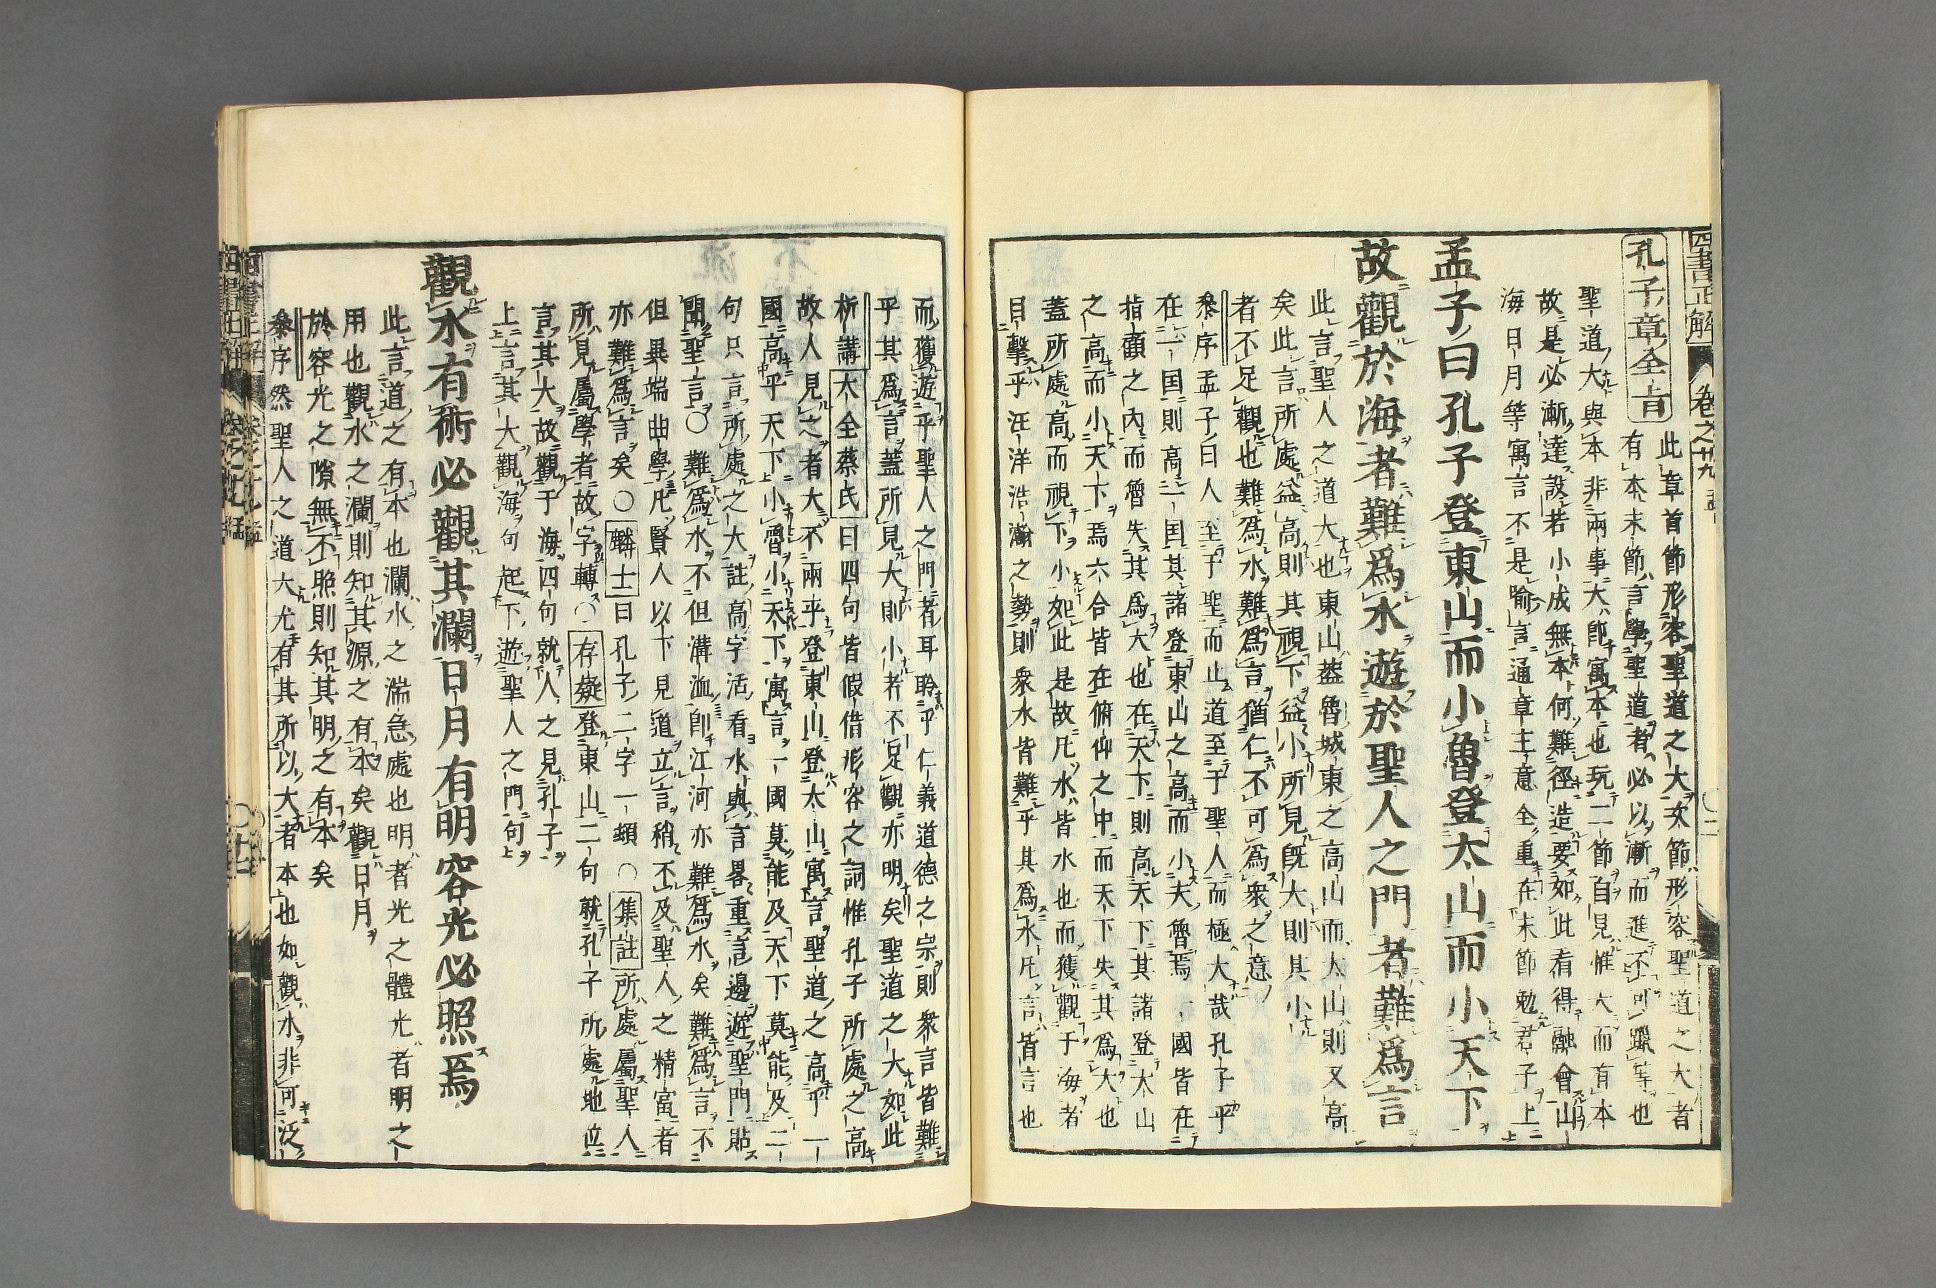 四書正解
卷之廿九
孔子章全旨
此章首節形容聖道之大次節形容聖道之大者
有本末節言學聖道者必以漸而進不可躐等也
聖道大與本非兩事大卽寓本也玩二節自見惟大而有本
故是必漸達設若小成無本何難徑造要如此看得融會山
海日月等寓言不是喻言通章主意全重在末節勉君子上
孟子曰孔子登東山而小魯登太山而小天下
故觀於海者難爲水遊於聖人之門者難爲言
此言聖人之道大也東山蓋魯城東之高山而太山則又高
矣此言所處益高則其視下益小所見旣大則其小
者不足觀也難爲水難爲言猶仁不可爲衆之意
叅序孟子曰人至于聖而止道至于聖人而極大哉孔子乎
在一国則高一国其諸登東山之高而小夫魯焉一國皆在
指顧之內而魯失其爲大也在天下則高天下其諸登太山
之高而小天下焉六合皆在俯仰之中而天下失其爲大也
蓋所處高而視下小如此是故凡水皆水也而獲觀于海者
目擊乎汪洋浩瀚之勢則衆水皆難乎其爲水凡言皆言也
而獲遊乎聖人之門者耳聆乎仁義道德之宗則衆言皆難
乎其爲言蓋所見大則小者不足觀亦明矣聖道之大如此
析講大全蔡氏曰四句皆假借形容之詞惟孔子所處之高
故人見之者大不兩乎登東山登太山寓言聖道之高乎一
國高乎天下小魯小天下寓言一國莫能及天下莫能及二
句只言所處之大註高字活看水與言畧重言邊遊聖門貼
聞聖言○難爲水不但溝洫卽江河亦難爲水矣難爲言不
但異端曲學凡賢人以下見道立言稍不及聖人之精富者
亦難爲言矣○麟士曰孔子二字一頓○集註所處屬聖人
所見屬學者故字轉○存疑登東山二句就孔子所處地位
言其大故觀于海四句就人之見孔子
上言其大觀海句起下遊聖人之門句
觀水有術必觀其瀾日月有明容光必照焉
此言道之有本也瀾水之湍急處也明者光之體光者明之
用也觀水之瀾則知其源之有本矣觀日月
於容光之隙無不照則知其明之有本矣
叅序然聖人之道大尤有其所以大者本也如觀水非可泛